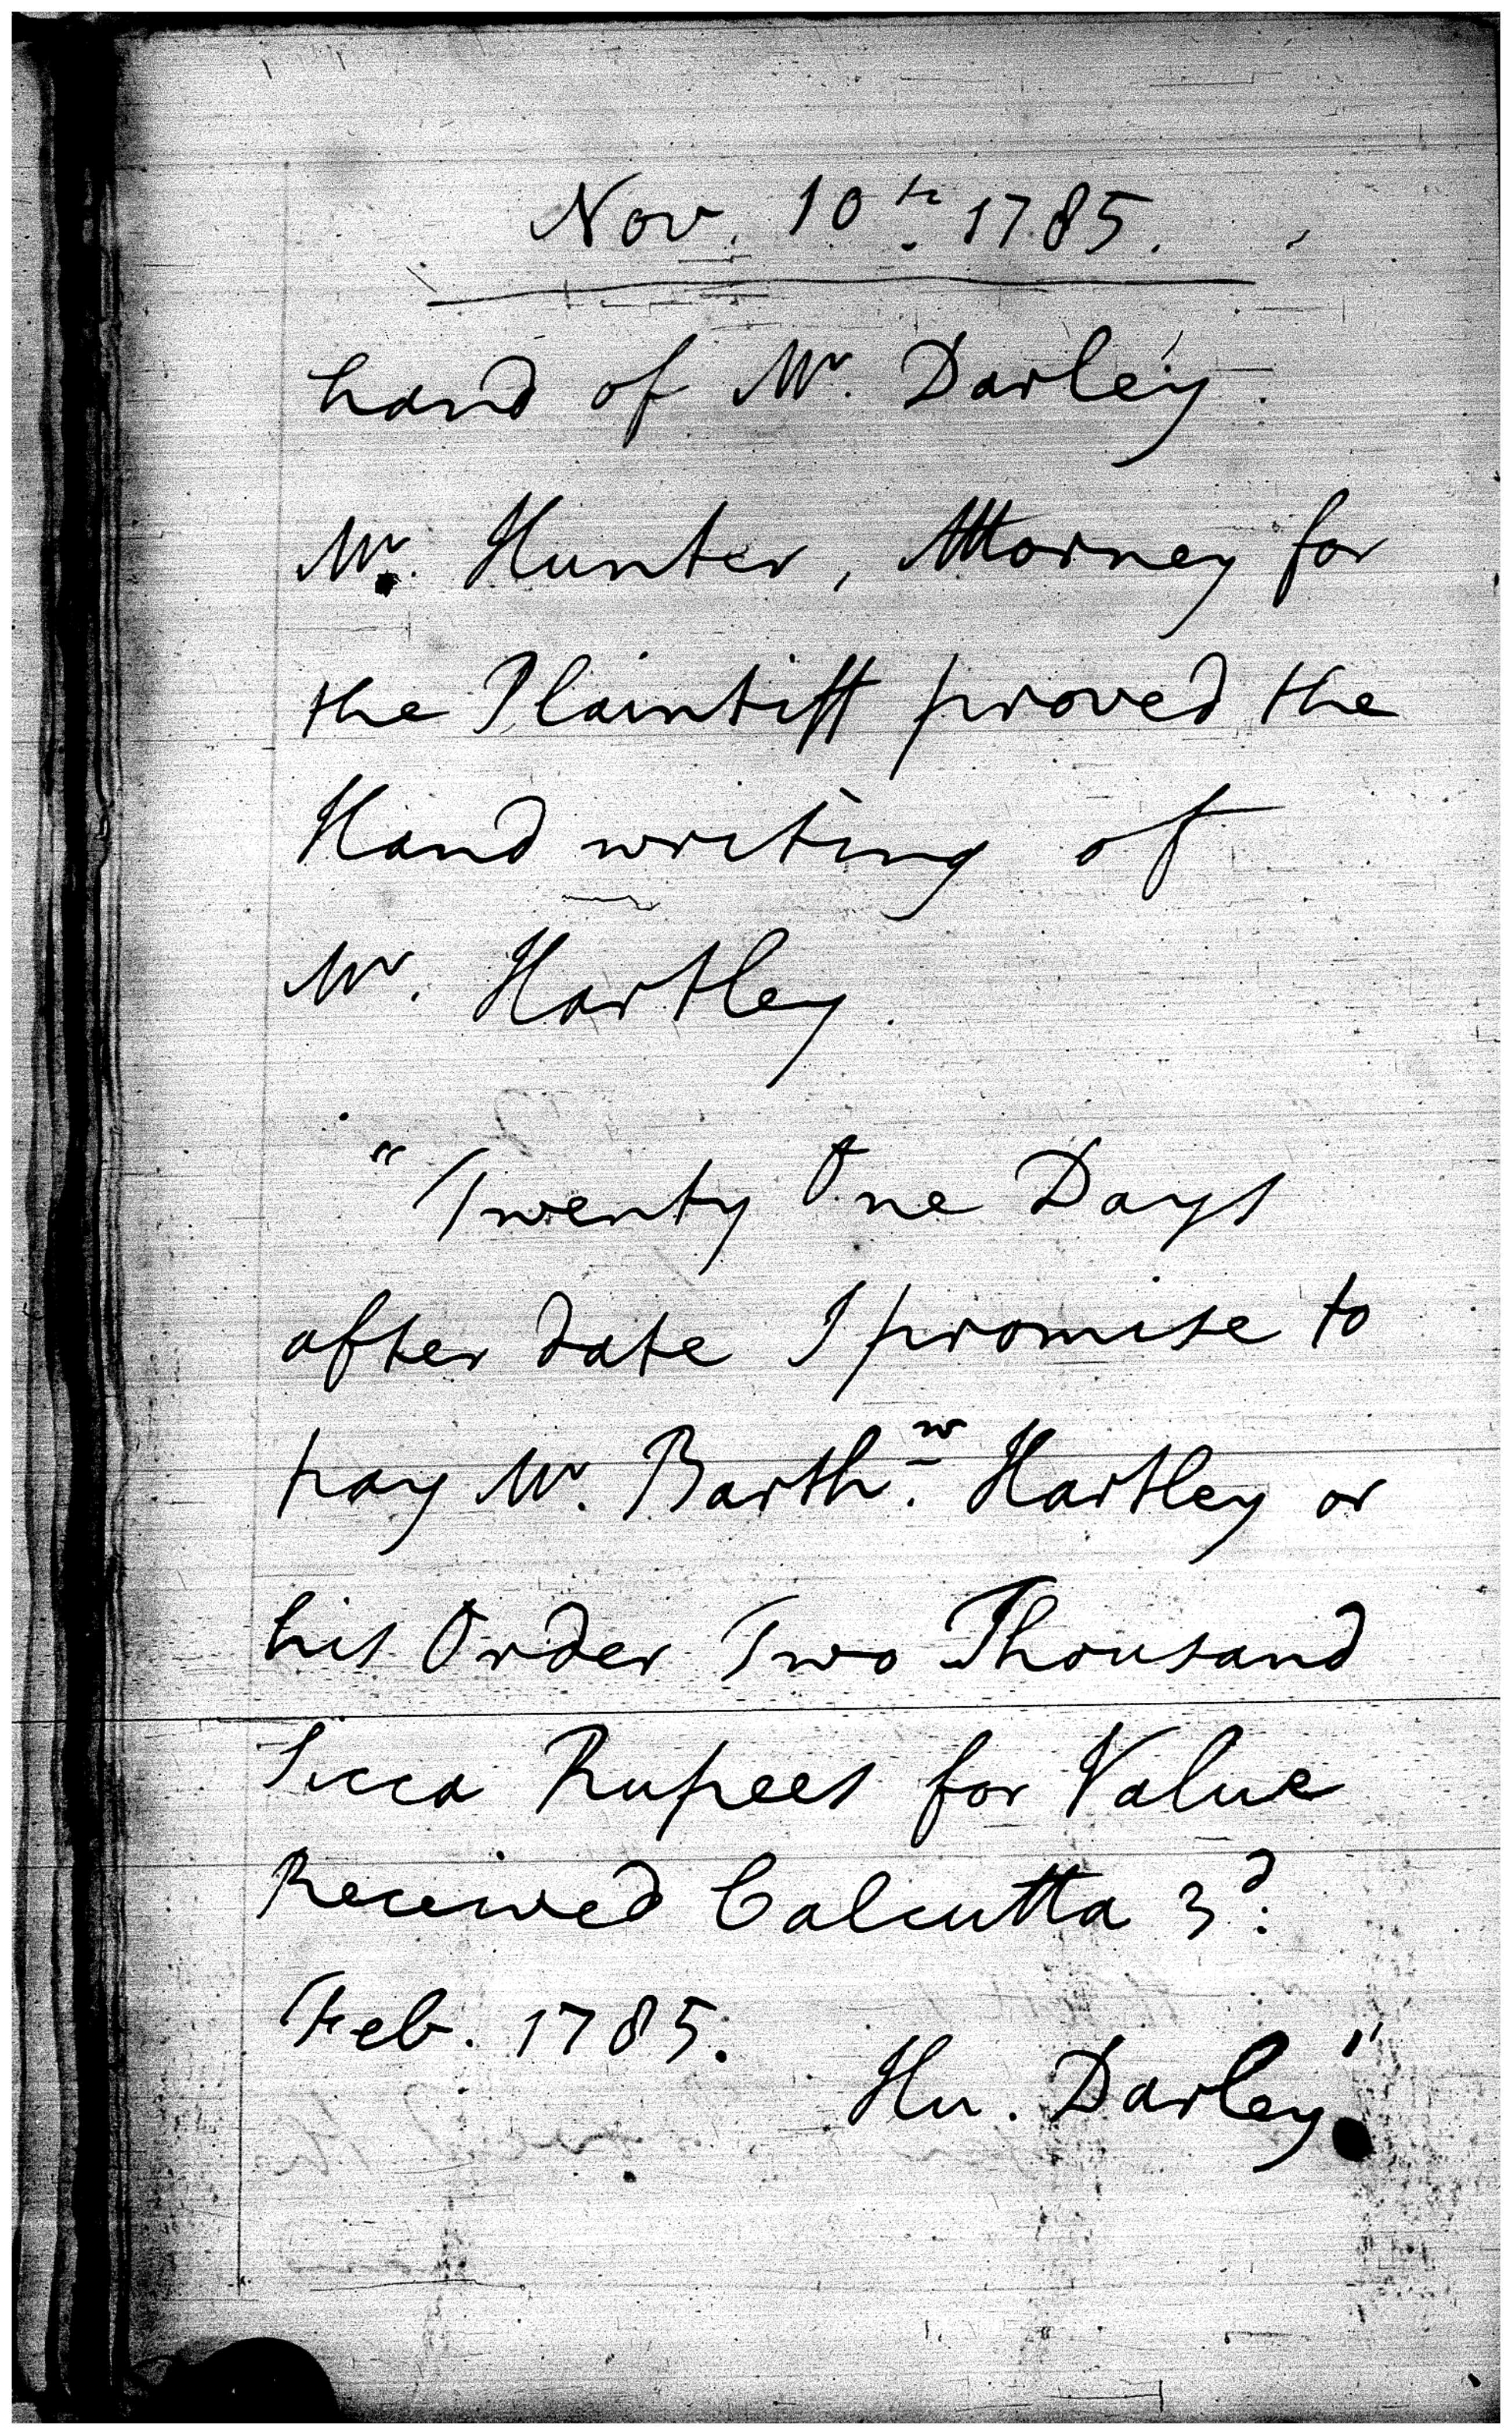 Nov. 10th 1785.
hand of Mr. Darley.
Mr. Hunter, Attorney for
the Plaintiff proved the
Hand writing of
Mr. Hartley.
"Twenty One Days
after date I promise to
pay Mr. Barthw. Hartley or
his Order Two Thousand
Sicca Rupees for Value
Received Calcutta 3d.
Feb. 1785.
Hu. Darley."